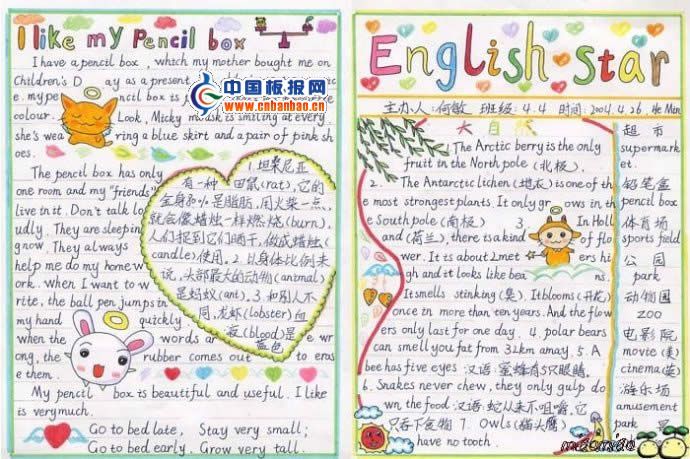 I like my Pencil box
I have a pencil box, which my mother bought me on
Children's D ay as a present.
e. my pe ncil box is
colour. Look, Micky mouse is smiling at every
she's wea ring a blue skirt and a pair of pink sh
oes.
The pencil box has only
one room and my "friends"
live in it. Don't talk lo
udly. They are sleeping
now. They always
help me do my home w
ork. When I want to w
rite, the ball pen jumps in
my hand quickly.
when the words are wr
ong, the rubber comes out to eras
e them.
My pencil box is beautiful and useful. I like
is very much.
Go to bed late, Stay very small;
Go to bed early. Grow very tall.
1. 坦桑尼亚
有一种田鼠(rat),它的
全身80%是脂肪,用火柴一点,
就会像蜡烛一样燃烧(burn).
人们捉到它们晒干,做成蜡烛(
candle)使用。2. 以身体比例来
说,头部最大的动物(animal)
是蚂蚁(ant)。3. 和别人不
同,龙虾(lobster)血
液(blood)是
蓝色
中国板报网
www.cnbanbao.cn
English Star
主办人:何敏 班级:4.4 时间:2004.4.26. He Min
大自然
1. The Arctic berry is the only
fruit in the North pole (北极).
2. The Antarctic lichen (地衣) is one of th
e most strongest plants. It only grows in th
e South pole (南极) 3. In Holl
and (荷兰), there is a kind of flo
wer. It is about 2 met ers hi
gh and it looks like bea ns.
It smells stinking (臭). It blooms (开花)
once in more than ten years. And the flow
ers only last for one day. 4. polar bears
can smell you fat from 32km away. 5. A
bee has five eyes 汉语:蜜蜂有5只眼睛.
6. Snakes never chew, they only gulp do
wn the food 汉语:蛇从来不咀嚼,它
只吞下食物 7. Owls (猫头鹰)
have no tooth.
超市
supermark
et
铅笔盒
pencil box
体育场
sports field
公园
park
动物园
zoo
电影院
movie (美)
cinema (英)
游乐场
amusement
park